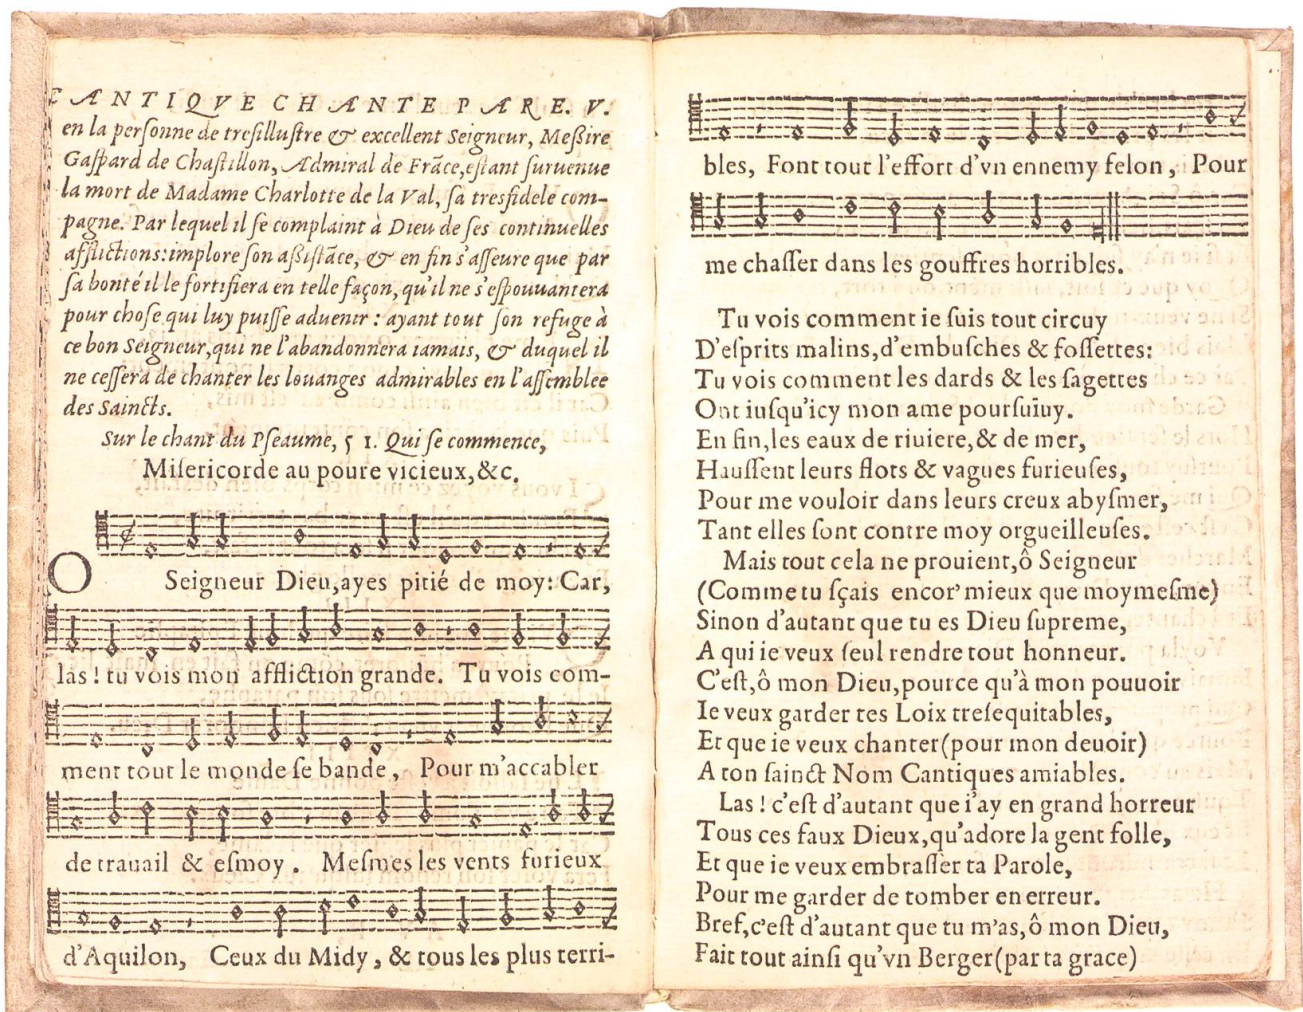 CANTIQVE CHANTE PAR E. V.
en la perſonne de treſilluſtre & excellent Seigneur, Meßire
Gaſpard de Chaſtillon, Admiral de Frãce, eſtant ſuruenue
la mort de Madame Charlotte de la Val, ſa treſfidele com-
pagne. Par lequel il ſe complaint à Dieu de ſes continuelles
afflictions: implore ſon aßiſtãce, & en fin s'aſſeure que par
ſa bonté il le fortifiera en telle façon, qu'il ne s'eſpouuantera
pour choſe qui luy puiſſe aduenir : ayant tout ſon refuge à
ce bon Seigneur, qui ne l'abandonnera iamais, & duquel il
ne ceſſera de chanter les louanges admirables en l'aſſemblee
des Saincts.
Sur le chant du Pſeaume, 51. Qui ſe commence,
Miſericorde au poure vicieux, &c.
O Seigneur Dieu, ayes pitié de moy: Car,
las ! tu vois mon affliction grande. Tu vois com-
ment tout le monde ſe bande, Pour m'accabler
de trauail & eſmoy. Meſmes les vents furieux
d'Aquilon, Ceux du Midy, & tous les plus terri-
bles, Font tout l'effort d'vn ennemy felon, Pour
me chaſſer dans les gouffres horribles.
Tu vois comment ie ſuis tout circuy
D'eſprits malins, d'embuſches & foſſettes:
Tu vois comment les dards & les ſagettes
Ont iuſqu'icy mon ame pourſuiuy.
En fin, les eaux de riuiere, & de mer,
Hauſſent leurs flots & vagues furieuſes,
Pour me vouloir dans leurs creux abyſmer,
Tant elles ſont contre moy orgueilleuſes.
Mais tout cela ne prouient, ô Seigneur
(Comme tu ſçais encor' mieux que moymeſme)
Sinon d'autant que tu es Dieu ſupreme,
A qui ie veux ſeul rendre tout honneur.
C'eſt, ô mon Dieu, pource qu'à mon pouuoir
Ie veux garder tes Loix treſequitables,
Et que ie veux chanter (pour mon deuoir)
A ton ſainct Nom Cantiques amiables.
Las ! c'eſt d'autant que i'ay en grand horreur
Tous ces faux Dieux, qu'adore la gent folle,
Et que ie veux embraſſer ta Parole,
Pour me garder de tomber en erreur.
Bref, c'eſt d'autant que tu m'as, ô mon Dieu,
Fait tout ainſi qu'vn Berger (par ta grace)